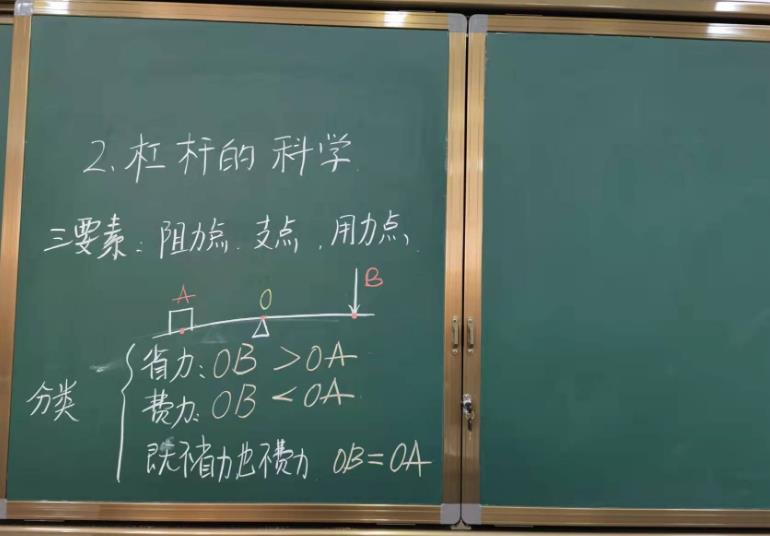 2、杠杆的科学
三要素：阻力点、支点、用力点、
A O B
省力：OB＞OA
分类 费力：OB＜OA
既不省力也不费力 OB=OA